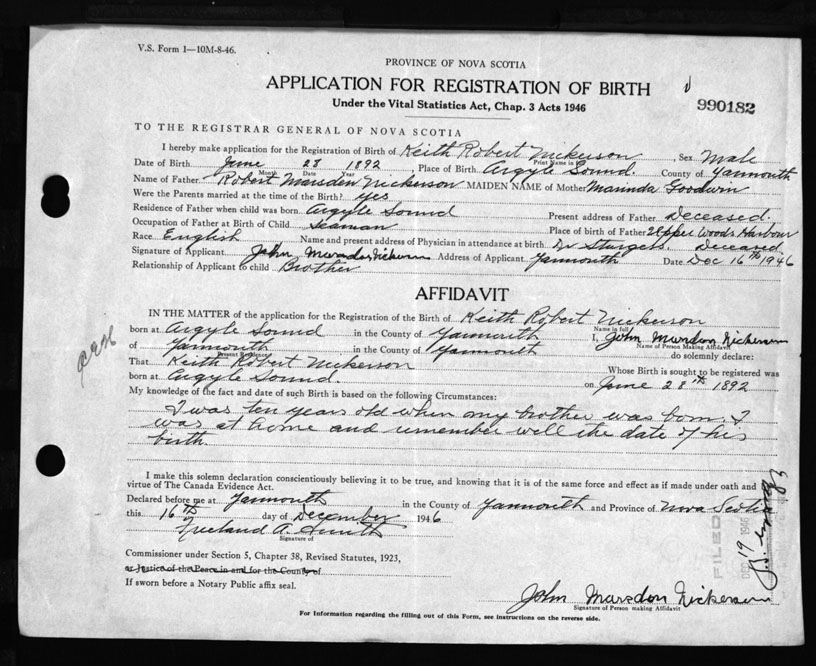 V.S. Form 1—10M-8-46.
PROVINCE OF NOVA SCOTIA
APPLICATION FOR REGISTRATION OF BIRTH
990182
Under the Vital Statistics Act, Chap. 3 Acts 1946
TO THE REGISTRAR GENERAL OF NOVA SCOTIA
I hereby make application for the Registration of Birth of Keith Robert Nickerson Sex Male
Print Name in full
Date of Birth June 28 1892 Place of Birth Argyle Sound. County of Yarmouth
Month Date Year
Name of Father Robert Marsden Nickerson MAIDEN NAME of Mother Marinda Goodwin
Were the Parents married at the time of the Birth? yes
Residence of Father when child was born Argyle Sound Present address of Father Deceased.
Occupation of Father at Birth of Child Seaman Place of birth of Father Upper Woods Harbour
Race English Name and present address of Physician in attendance at birth Dr Sturgels. Deceased
Signature of Applicant John Marsden Nickerson Address of Applicant Yarmouth Date Dec 16th 1946
Relationship of Applicant to child Brother
AFFIDAVIT
IN THE MATTER of the application for the Registration of the Birth of Keith Robert Nickerson
Name in full
born at Argyle Sound in the County of Yarmouth I, John Marsdon Nickerson
Name of Person Making Affidavit
of Yarmouth in the County of Yarmouth do solemnly declare:
Present Residence
That Keith Robert Nickerson Whose Birth is sought to be registered was
born at Argyle Sound. on June 28th 1892
My knowledge of the fact and date of such Birth is based on the following Circumstances:
I was ten years old when my brother was born. I
was at home and remember well the date of his
birth.
I make this solemn declaration conscientiously believing it to be true, and knowing that it is of the same force and effect as if made under oath and by
virtue of The Canada Evidence Act.
Declared before me at Yarmouth in the County of Yarmouth and Province of Nova Scotia
this 16th day of December 1946
Freeland A. Smith
Signature of
Commissioner under Section 5, Chapter 38, Revised Statutes, 1923,
or Justice of the Peace in and for the County of
If sworn before a Notary Public affix seal.
FILED
John Marsdon Nickerson
Signature of Person making Affidavit
For Information regarding the filling out of this Form, see instructions on the reverse side.